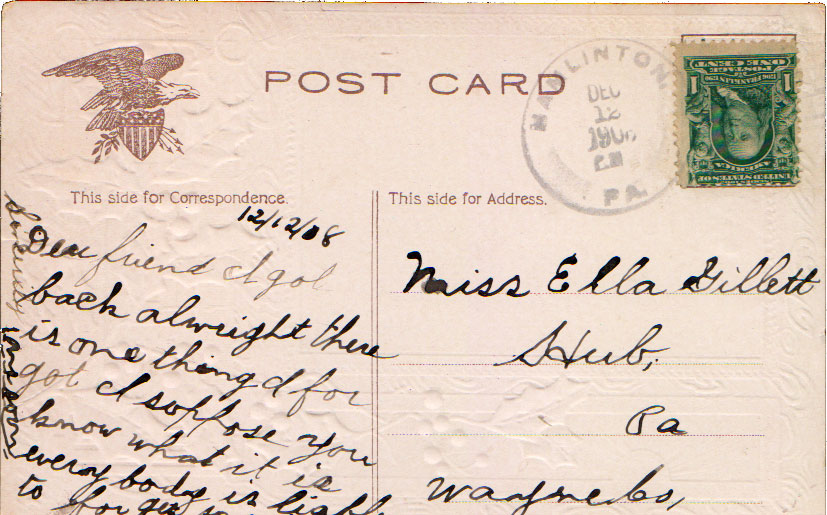 POST CARD
HAMLINTON,
DEC
12
1908
PA.
ONE CENT
POSTAGE
1
1
AMERICA
UNITED STATES OF
This side for Correspondence.
This side for Address.
12/12/08
Dear friend I got
back alwright there
is one thing I for
got I soppose you
know what it is
every body is
to
Miss Ella Gillett
Hub,
Pa
Wayne Co,
Sincerely